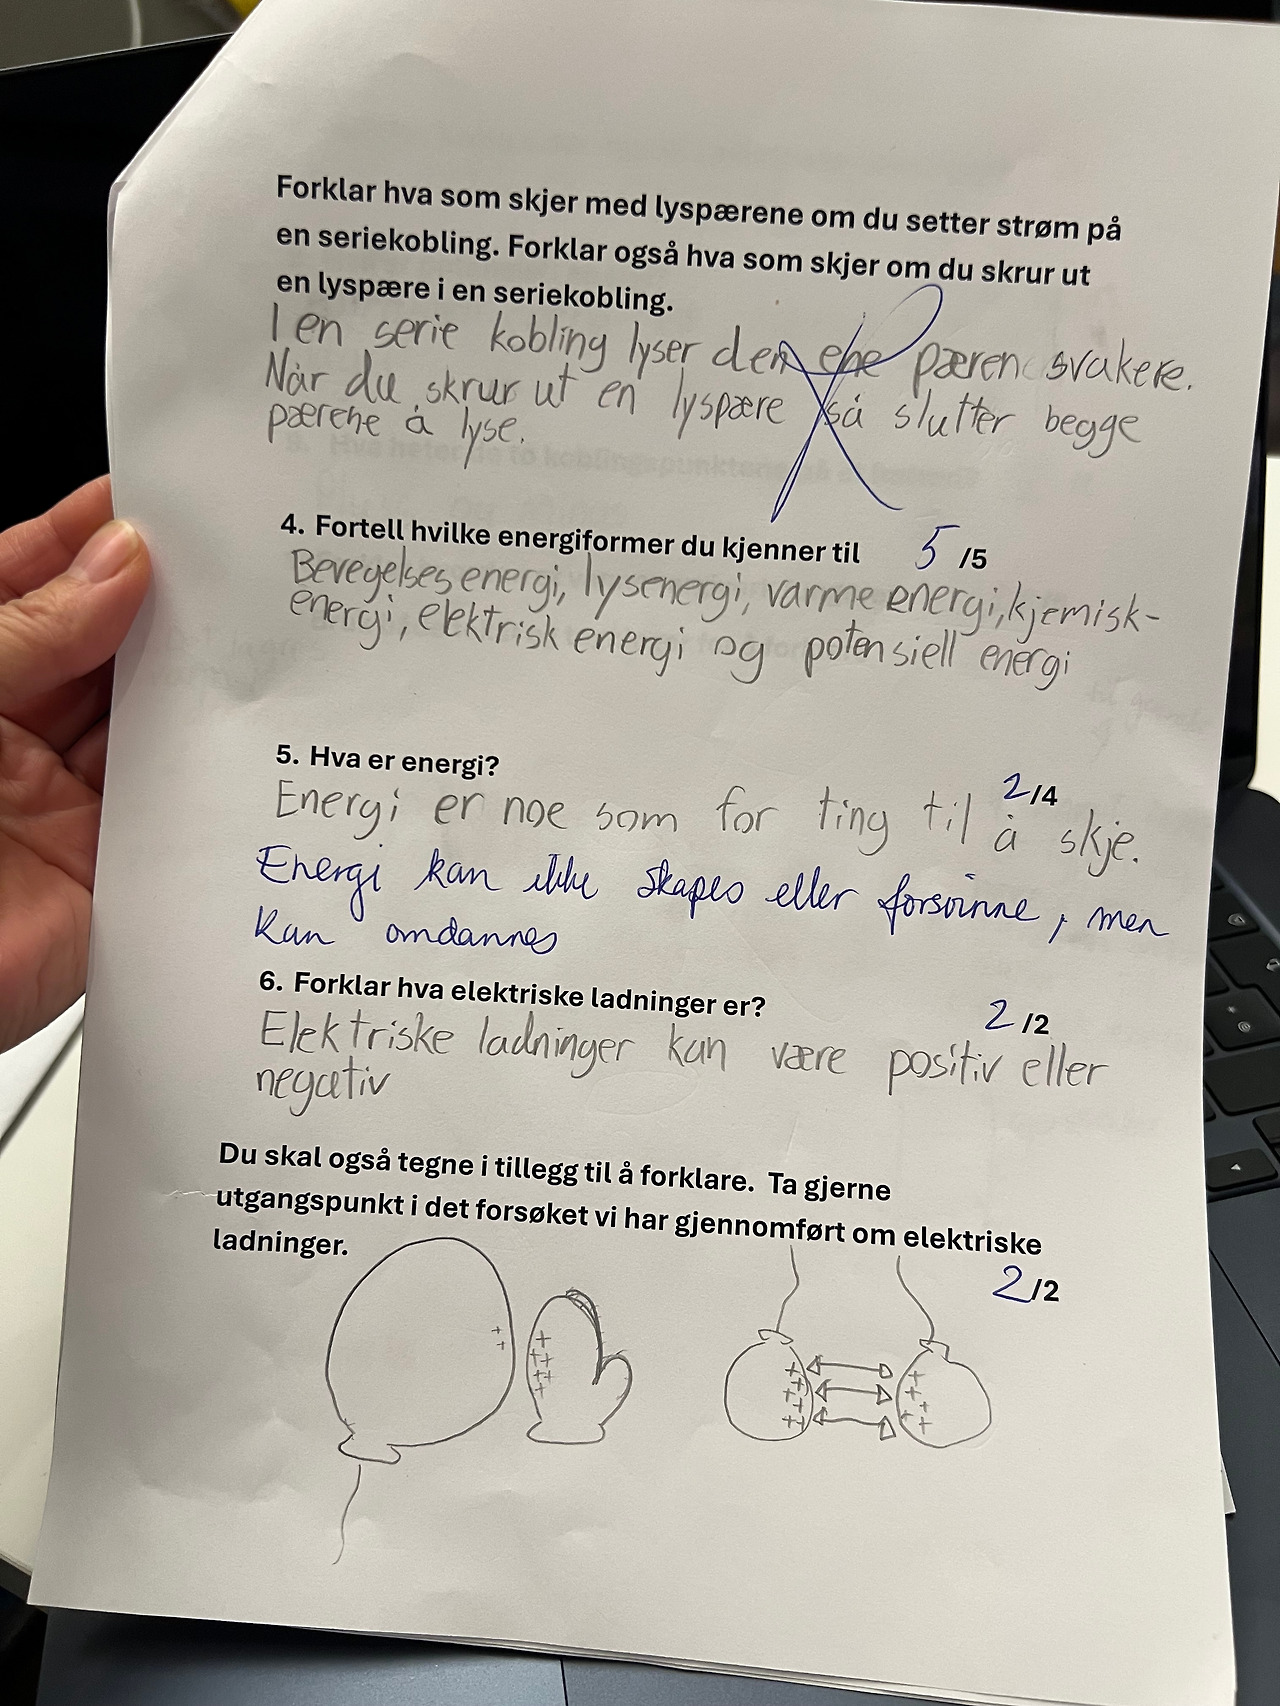 Forklar hva som skjer med lyspærene om du setter strøm på
en seriekobling. Forklar også hva som skjer om du skrur ut
en lyspære i en seriekobling.
I en serie kobling lyser den ene pæren svakere.
Når du skrur ut en lyspære så slutter begge
pærene å lyse.
4. Fortell hvilke energiformer du kjenner til 5 /5
Bevegelsesenergi, lysenergi, varme energi, kjemisk-
energi, elektrisk energi og potensiell energi
5. Hva er energi?
2 /4
Energi er noe som for ting til å skje.
Energi kan ikke skapes eller forsvinne, men
kan omdannes
6. Forklar hva elektriske ladninger er? 2 /2
Elektriske ladninger kan være positiv eller
negativ
Du skal også tegne i tillegg til å forklare. Ta gjerne
utgangspunkt i det forsøket vi har gjennomført om elektriske
ladninger.
2 /2